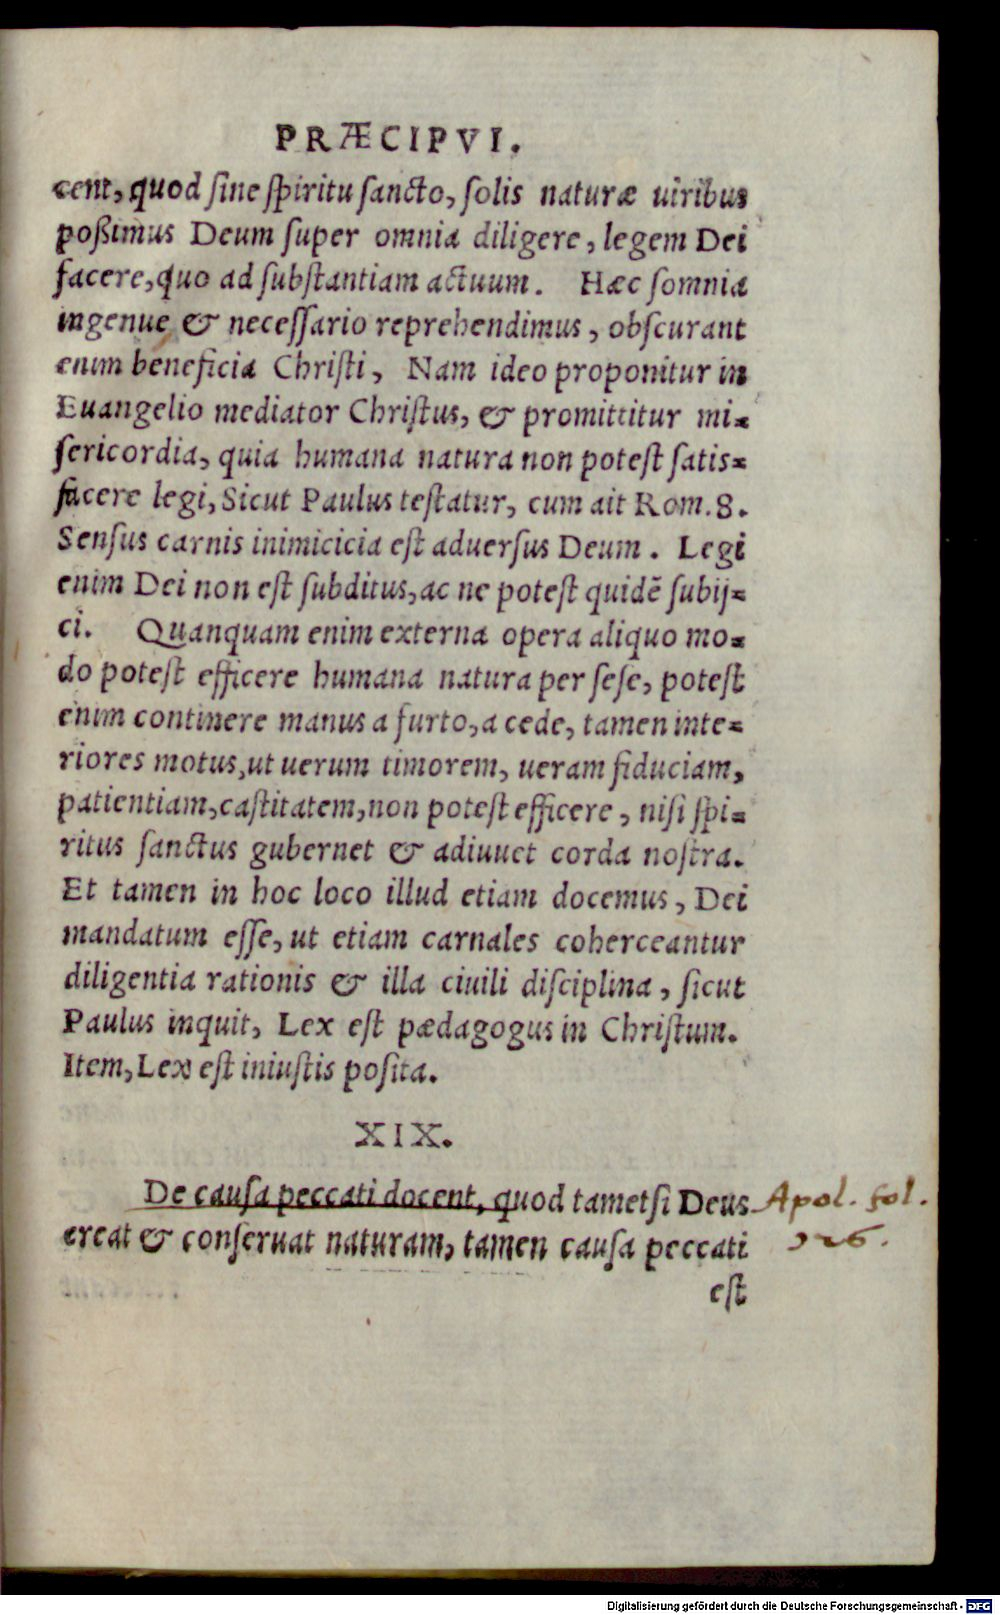 PRÆCIPVI.
cent, quod sine spiritu sancto, solis naturæ uiribus
poßimus Deum super omnia diligere, legem Dei
facere, quo ad substantiam actuum. Hæc somnia
ingenue & necessario reprehendimus, obscurant
enim beneficia Christi, Nam ideo proponitur in
Euangelio mediator Christus, & promittitur mi=
sericordia, quia humana natura non potest satis=
facere legi, Sicut Paulus testatur, cum ait Rom. 8.
Sensus carnis inimicicia est aduersus Deum. Legi
enim Dei non est subditus, ac ne potest quidē subij=
ci. Quanquam enim externa opera aliquo mo=
do potest efficere humana natura per sese, potest
enim continere manus a furto, a cede, tamen inte=
riores motus, ut uerum timorem, ueram fiduciam,
patientiam, castitatem, non potest efficere, nisi spi=
ritus sanctus gubernet & adiuuet corda nostra.
Et tamen in hoc loco illud etiam docemus, Dei
mandatum esse, ut etiam carnales coherceantur
diligentia rationis & illa ciuili disciplina, sicut
Paulus inquit, Lex est pædagogus in Christum.
Item, Lex est iniustis posita.
XIX.
De causa peccati docent, quod tametsi Deus
creat & conseruat naturam, tamen causa peccati
est
Apol. fol.
Digitalisierung gefördert durch die Deutsche Forschungsgemeinschaft - DFG